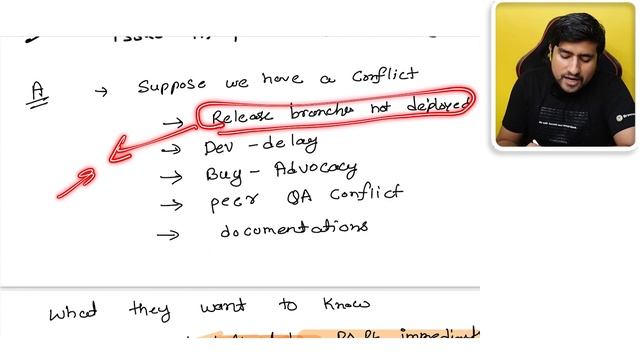 A → Suppose we have a Conflict
→ Release branche not deployed
→ Dev - delay
→ Bug - Advocacy
→ peer QA Conflict
→ documentations
What they want to Know